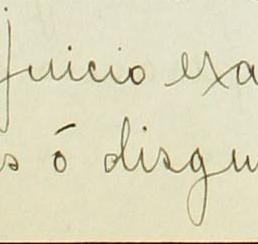 juicio exa
s ó disgu